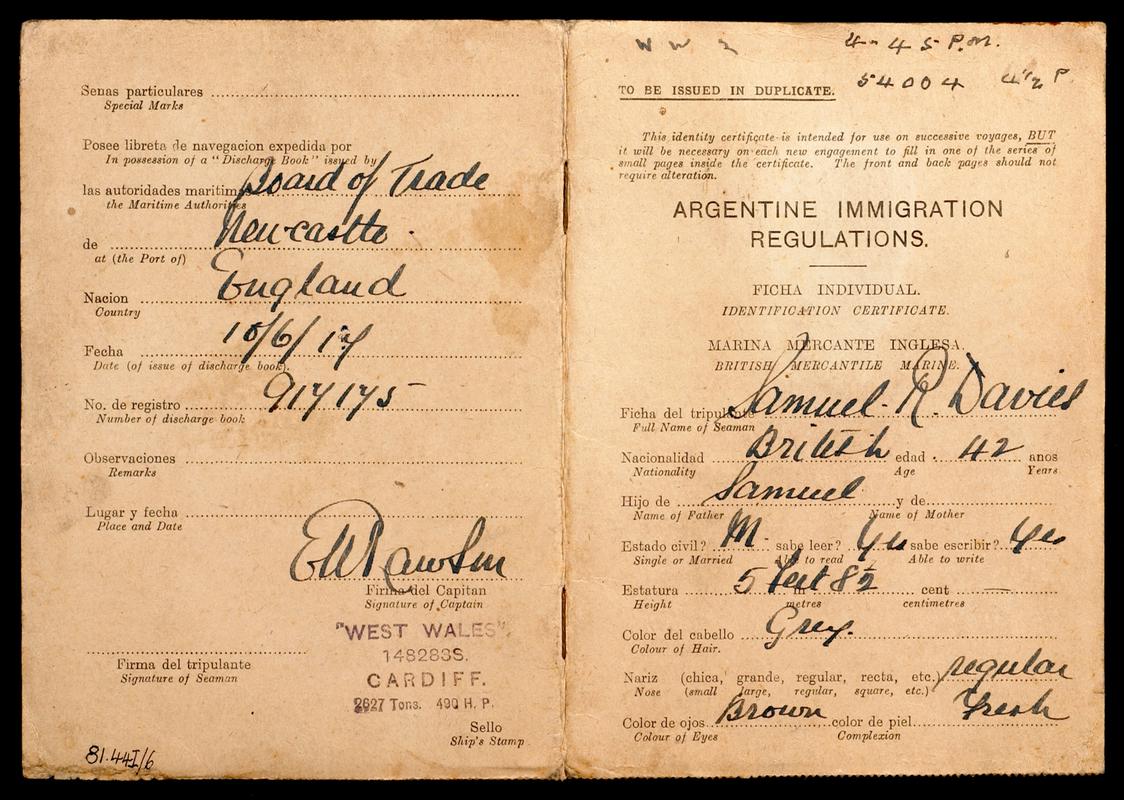 Senas particulares
Special Marks
Posee libreta de navegacion expedida por
In possession of a "Discharge Book" issued by
las autoridades maritimas Board of Trade
the Maritime Authorities
de Newcastle.
at (the Port of)
Nacion England
Country
Fecha 10/6/19
Date (of issue of discharge book).
No. de registro 917175
Number of discharge book
Observaciones
Remarks
Lugar y fecha
Place and Date
Firma del Capitan
Signature of Captain
"WEST WALES".
148283S.
CARDIFF.
2627 Tons. 490 H. P.
Firma del tripulante
Signature of Seaman
Sello
Ship's Stamp
81.44I/6
WW2
4-45 P.M.
54004 4½ P
TO BE ISSUED IN DUPLICATE.
This identity certificate is intended for use on successive voyages, BUT
it will be necessary on each new engagement to fill in one of the series of
small pages inside the certificate. The front and back pages should not
require alteration.
ARGENTINE IMMIGRATION
REGULATIONS.
FICHA INDIVIDUAL.
IDENTIFICATION CERTIFICATE.
MARINA MERCANTE INGLESA.
BRITISH MERCANTILE MARINE.
Ficha del tripulante Samuel R. Davies
Full Name of Seaman
Nacionalidad British edad 42 anos
Nationality Age Years
Hijo de Samuel y de
Name of Father Name of Mother
Estado civil? M. sabe leer? Yes sabe escribir? Yes
Single or Married Able to read Able to write
Estatura 5 feet 8½ m cent —
Height metres centimetres
Color del cabello Grey.
Colour of Hair.
Nariz (chica, grande, regular, recta, etc.) regular
Nose (small large, regular, square, etc.)
Color de ojos Brown color de piel Fresh
Colour of Eyes Complexion